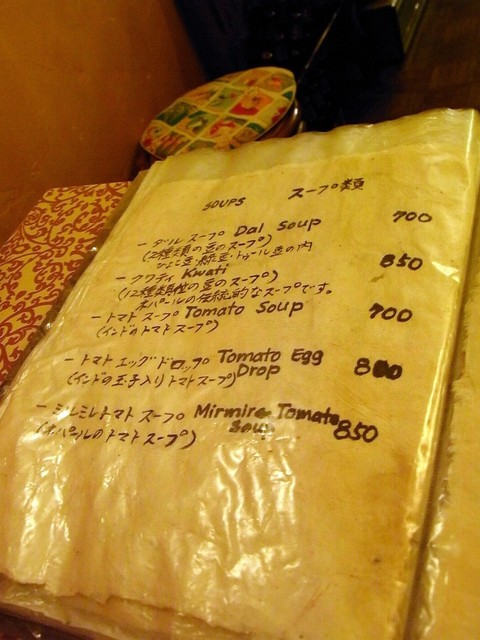 SOUPS スープ類
ー ダル スープ Dal Soup 700
(2種類の豆のスープ)
ひよこ豆・緑豆・トゥール豆の内
ー クワティ Kwati 850
(12種類位の豆のスープ)
ネパールの伝統的なスープです。
ー トマト スープ Tomato Soup 700
(インドのトマトスープ)
ー トマト エッグ ドロップ Tomato Egg Drop 800
(インドの玉子入りトマトスープ)
ー ミルミレトマト スープ Mirmire Tomato Soup 850
(ネパールのトマト スープ)